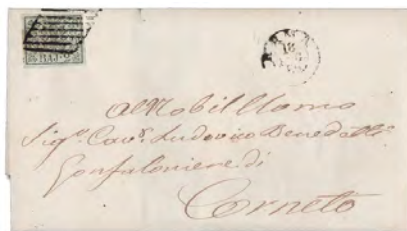 BAJ. 2
ROMA
18
Al Nobil Uomo
Sigr. Cavr. Ludovico Benedetti
Gonfaloniere di
Corneto